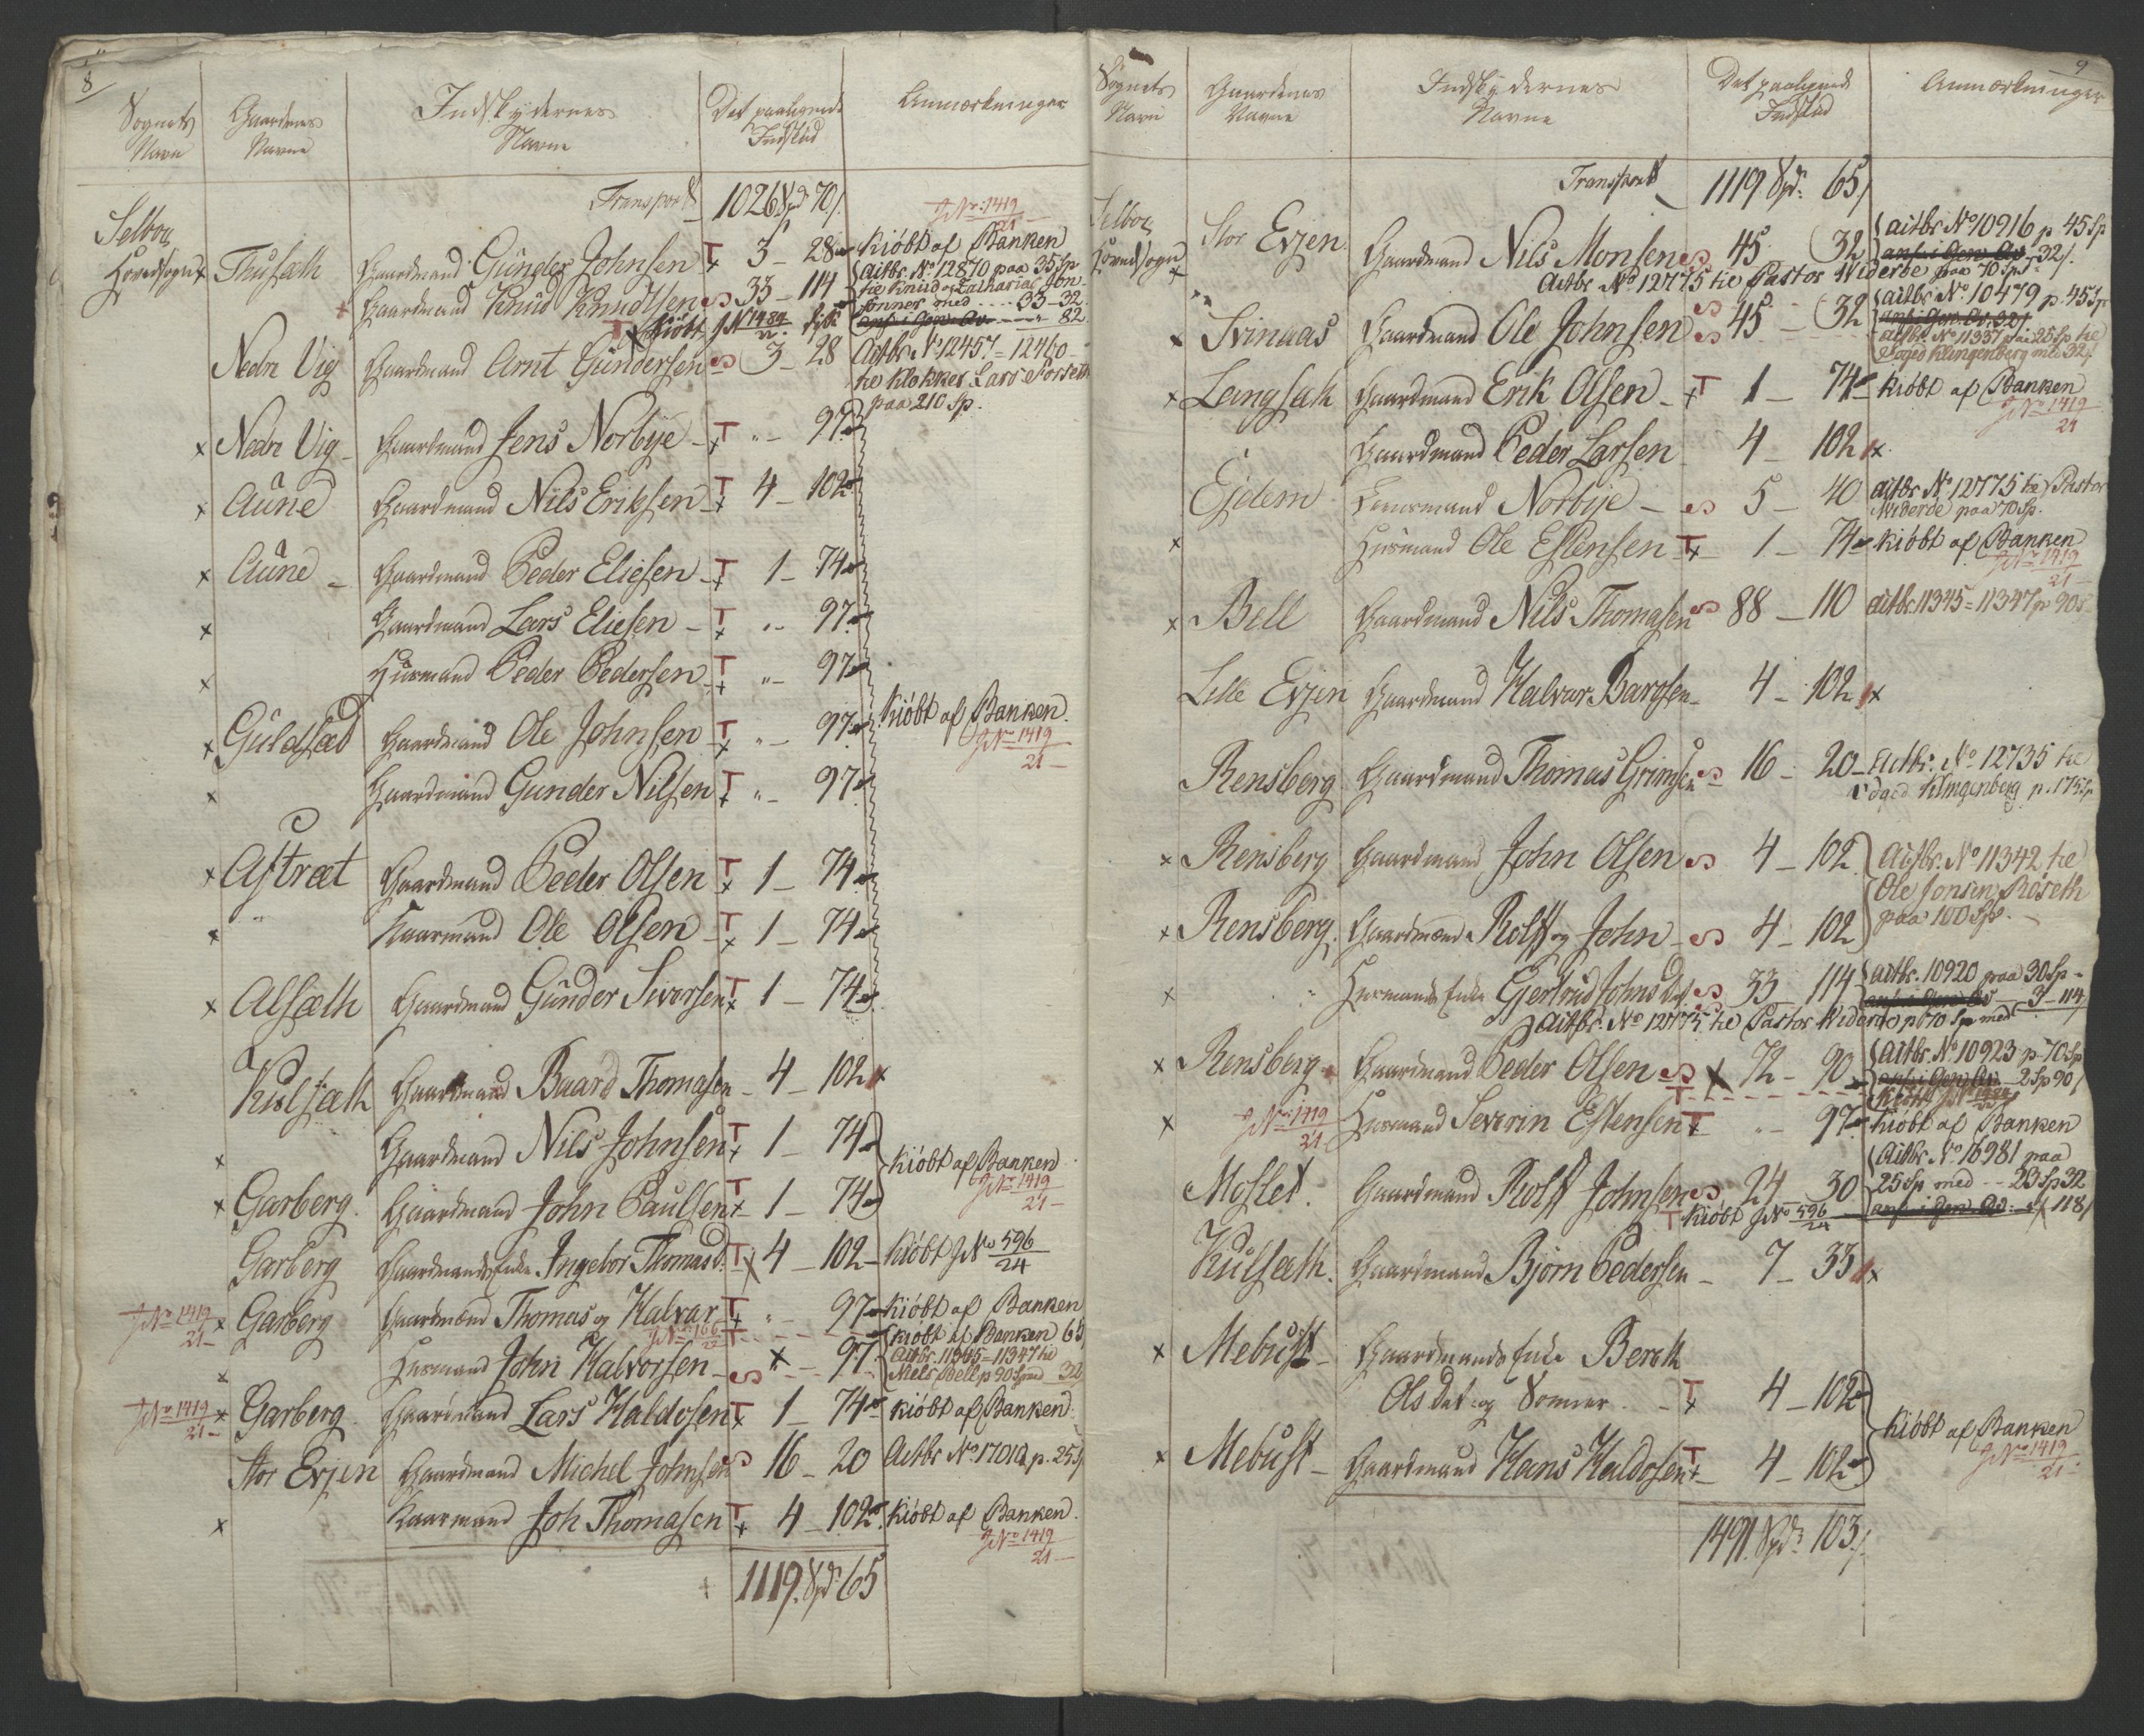 8
Sognets Navn Gaardenes Navne Indskydernes Navne Det paaligende Indskud Anmærkninger
Transport 1026 Spd 70 s.
JNo: 1419/21
Selboe Hovedsogn
x Thusæth Gaardmand Gunder Johnsen T x 3 - 28 Kiöbt af Banken
Gaardmand Knud Knudtsen s 33 - 114 { Actbr. No 12870 paa 35 Sp
til Knud og Zacharias Jon-
sönner med .... 33 - 32.
T Kiöbt JNo 1484/22 ansf i Gen. Av. 82.
Nedre Vig Gaardmand Arnt Gundersen s 3 - 28 Actbr No 12457 = 12460
til Klokker Lars Morseth
paa 210 Sp.
x Nedre Vig - Gaardmand Jens Norbye - T x " - 97.
x Aune Gaardmand Nils Eriksen - T x 4 - 102
x Aune - Gaardmand Peder Eliesen - T x 1 - 74
x Gaardmand Lars Eliesen - T x " - 97.
x Huusmand Peder Pedersen - T x " - 97
x Guldsæd Gaardmand Ole Johnsen - T x " - 97. Kiöbt af Banken.
JNo 1419/21
x Gaardmand Gunder Nilsen T x " - 97.
x Astræt Gaardmand Peder Olsen T x 1 - 74
x " Kaarmand Ole Olsen - T x 1 - 74
x Alsæth Gaardmand Gunder Siversen T x 1 - 74
Kulsæth Gaardmand Baard Thomasen - 4 - 102 x
x Gaardmand Nils Johnsen T x 1 - 74 Kiöbt af Banken
x Garberg. Gaardmand John Paulsen T x 1 - 74 JNo 1419/21
Garberg Gaardmands Enke Ingebor Thomasd. T x 4 - 102 - Kiöbt JNo 596/24
JNo 1419/21 x Garberg Gaardmænd Thomas og Halvar T x " - 97 Kiöbt af Banken
JNo 166/22 T - - - { kiöbt af Banken 65
x Huusmand John Halvorsen - s x - 97. Actbr. 11345 = 11347 til
Niels Bell p 90 Sp med 32
JNo 1419/21 x Garberg Gaardmand Lars Haldosen T x 1 - 74 kiöbt af Banken.
Stor Evjen Gaardmand Michel Johnsen s 16 - 20 Actbr No 17010 p. 25 s
x Kaarmand Joh Thomasen T x 4 - 102. Kiöbt af Banken.
JNo 1419/21
1119. Spd 65
9
Sognets Navn Gaardenes Navne Indskydernes Navne Det paaligende Indskud Anmærkninger
Transport 1119 Spd: 65 s
Selboe Hovedsogn
x Stor Evjen Gaardmand Nils Monsen s 45. (32 { actbr No 10916 p 45 Sp
ansf i Gen Av. 32 s.
Actbr No 12775 til Pastor Widerøe paa 70 Sp.
x Svinaas Gaardmand Ole Johnsen s 45 - (32 { actbr No 10479 p. 45 Sp
ansf i Gen. Av. 32 s
actbr. No 11357 paa 25 Sp til
Foged Klingenberg med 32 s
x Langsæth Gaardmand Erik Olsen - x T 1 - 74 Kiöbt af Banken
JNo 1419/21
Gaardmand Peder Larsen 4 - 102 x
Ejdem Leensmand Norbye - s 5 - 40 actbr No 12775 til Pastor
Widerøe paa 70 Sp.
x Huusmand Ole Estensen T x 1 - 74 - Kiöbt af Banken
JNo 1419/21
x Bell Gaardmand Nils Thomasen s 88 - 110 actbr. 11345 = 11347 p 90 s
Lille Evjen Gaardmand Halvar Bargsen - 4 - 102 x
Rensberg Gaardmand Thomas Grimsen s 16 - 20 - Actbr. No 12735 til
Foged Klingenberg p. 175 Sp
x Rensberg Gaardmand John Olsen s 4 - 102. { Actbr. No 11342 til
Ole Jonsen Röseth
x Rensberg. Gaardmænd Rolff og John - s 4 - 102 paa 100 Sp.
x " Huusmands Enke Gjertrud Johnsdat. s 33 - 114 { actbr. 10920 paa 30 Sp -
ansf i Gen Av 3 - 114
Actbr. No 12775 til Pastor Widerøe p 70 Sp med
x Rensberg - Gaardmand Peder Olsen s x 72 - 90 { Actbr. No 10923 p 70 Sp
ansf i Gen Av. - 2 Sp 90 s
T - - - Kiöbt JNo 1484/22
x JNo 1419/21 Huusmand Severin Estensen T x " - 97. Kiöbt af Banken
Moslet. Gaardmand Rolff Johnsen s 24 - 30 { Actbr. No 16981 paa
25 Sp med - - 23 Sp 32
T Kiöbt JNo 596/24 ansf i Gen Av. - 118 s
Kulsæth. Gaardmand Bjørn Pedersen - 7 - 33 x
x Mebust - Gaardmands Enke Bereth
Ols Dat og Sönner. - T x 4 - 102 Kiöbt af Banken
x Mebust - Gaardmand Hans Haldosen T x - 4 - 102 JNo 1419/21
1491. Spd: 103 s.